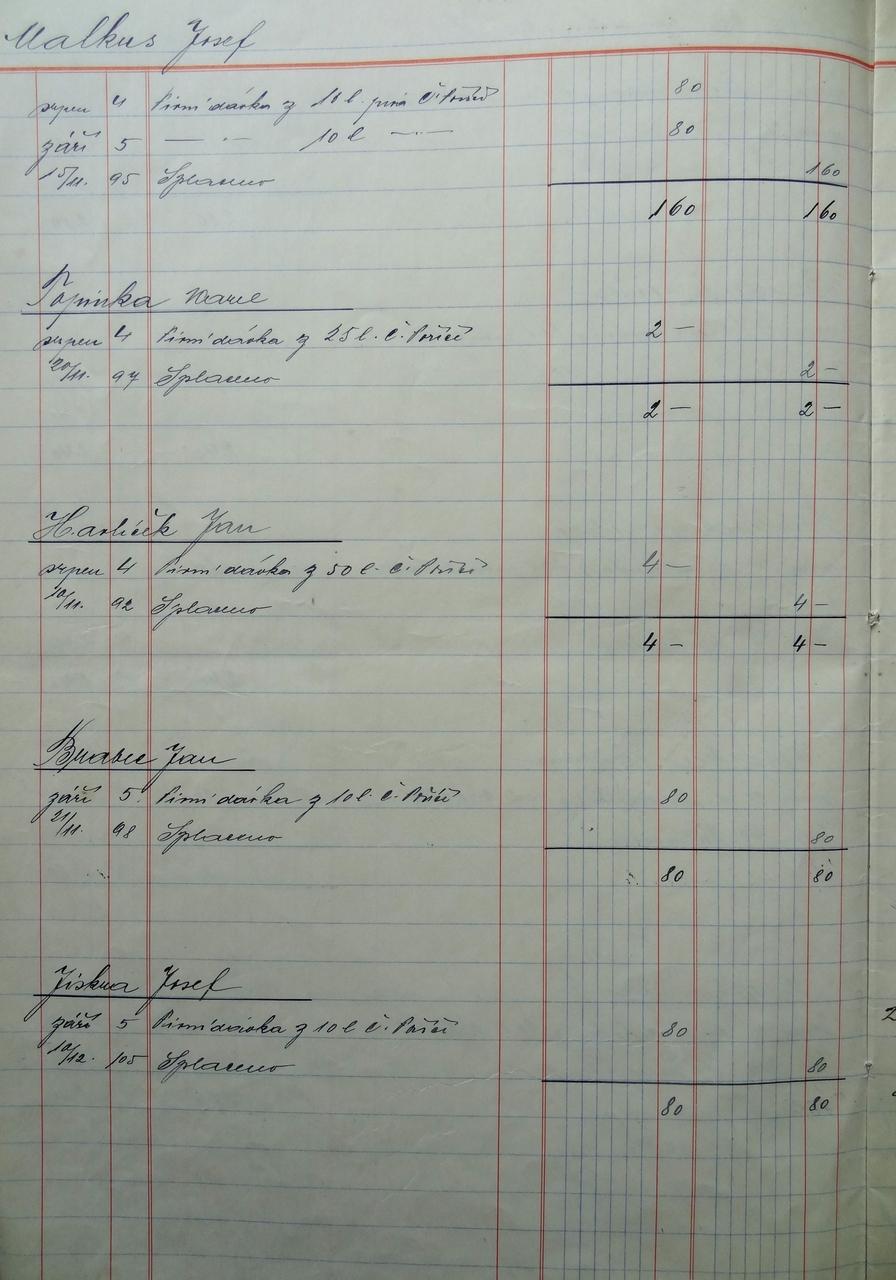 Malkus Josef
srpen 4 Pivní dávka z 10 l. piva Č. Poříčí 80
září 5 — " — 10 l — " — 80
15/11. 95 Splaceno 160
160 160
Topinka Karel
srpen 4 Pivní dávka z 25 l. Č. Poříčí 2 —
20/11. 97 Splaceno 2 —
2 — 2 —
Havlíček Jan
srpen 4 Pivní dávka z 50 l. Č. Poříčí 4 —
10/11. 92 Splaceno 4 —
4 — 4 —
Brabec Jan
září 5. Pivní dávka z 10 l. Č. Poříčí 80
21/11. 98 Splaceno 80
80 80
Jiskra Josef
září 5 Pivní dávka z 10 l Č. Poříčí 80
10/12. 105 Splaceno 80
80 80
2